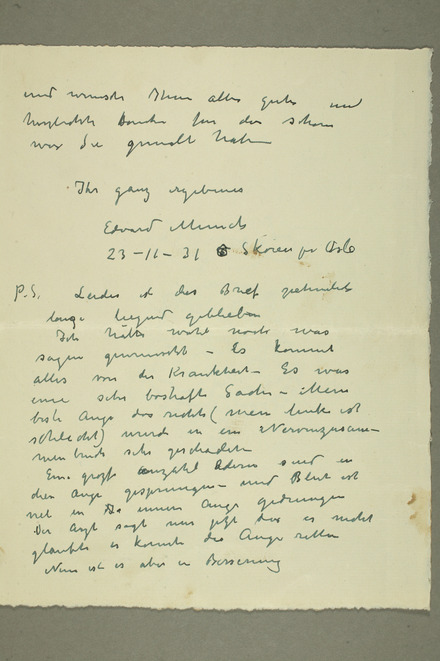 und wünsche Ihnen alles gute und
herzlichste danke für das schöne
was Sie gemalt haben
Ihr ganz ergebener
Edvard Munch
23-11-31 Skøien pr Oslo
P.S. Leider ist der Brief
lange liegend geblieben
Ich hätte wohl noch was
sagen gewünscht – Es kommt
alles von der Krankheit – Es war
eine sehr boshafte Sache – Mein
beste Auge das rechts (mein linke ist
schlecht) wurde in ein Nervenzusam-
menbruch sehr geschaden
Eine groß anzahl Adern sind in
dem Auge gesprungen – und Blut ist
viel in das innere Auge gedrungen
Der Arzt sagt mir jetzt das er nicht
glaubte er könnte das Auge retten
Nun ist es aber in Besserung